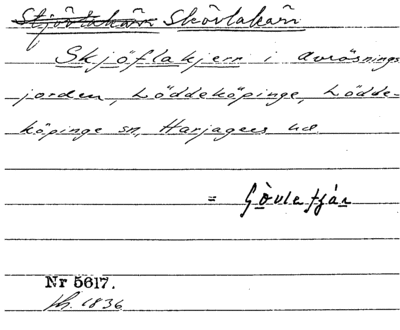 Skörlakärr
Skjöflakjerr i avrösnings
jorden, Löddeköpinge, Lödde-
köpinge sn, Harjagers hd.
= Gövlatjär
Nr 5617.
1836